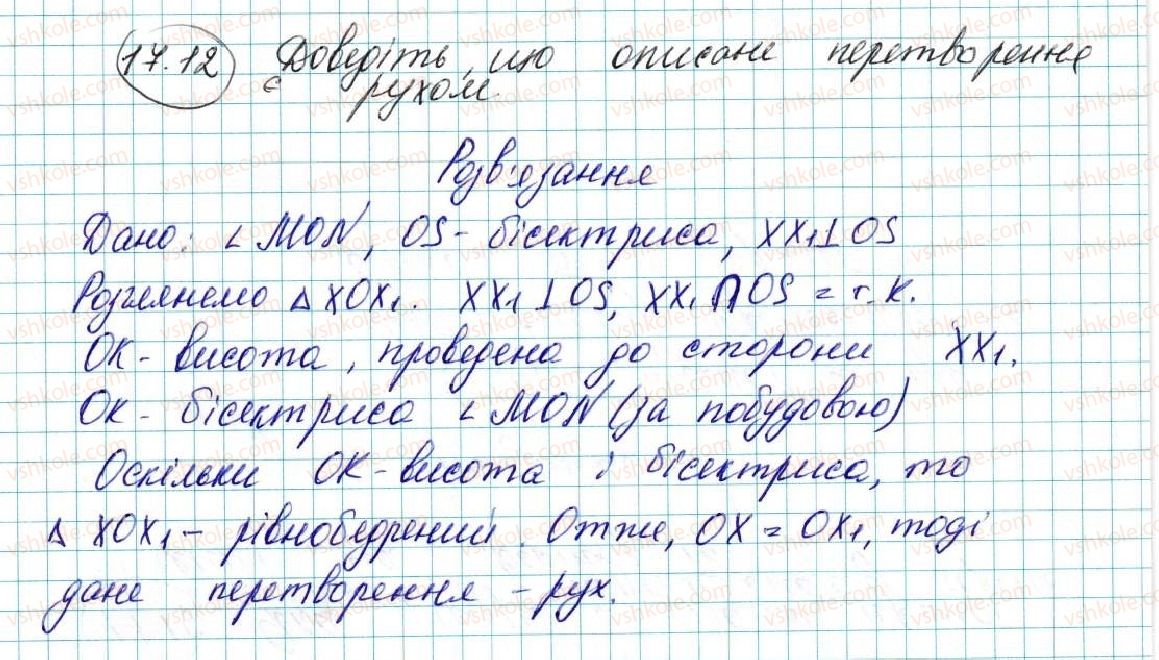 17.12 Доведіть, що описане перетворення
є рухом.
Розв'язання
Дано: ∠MON, OS - бісектриса, XX₁⊥OS
Розглянемо △XOX₁. XX₁⊥OS, XX₁∩OS = т.К.
OK - висота, проведена до сторони XX₁.
OK - бісектриса ∠MON (за побудовою)
Оскільки OK - висота і бісектриса, то
△XOX₁ - рівнобедрений. Отже, OX = OX₁, тоді
дане перетворення - рух.